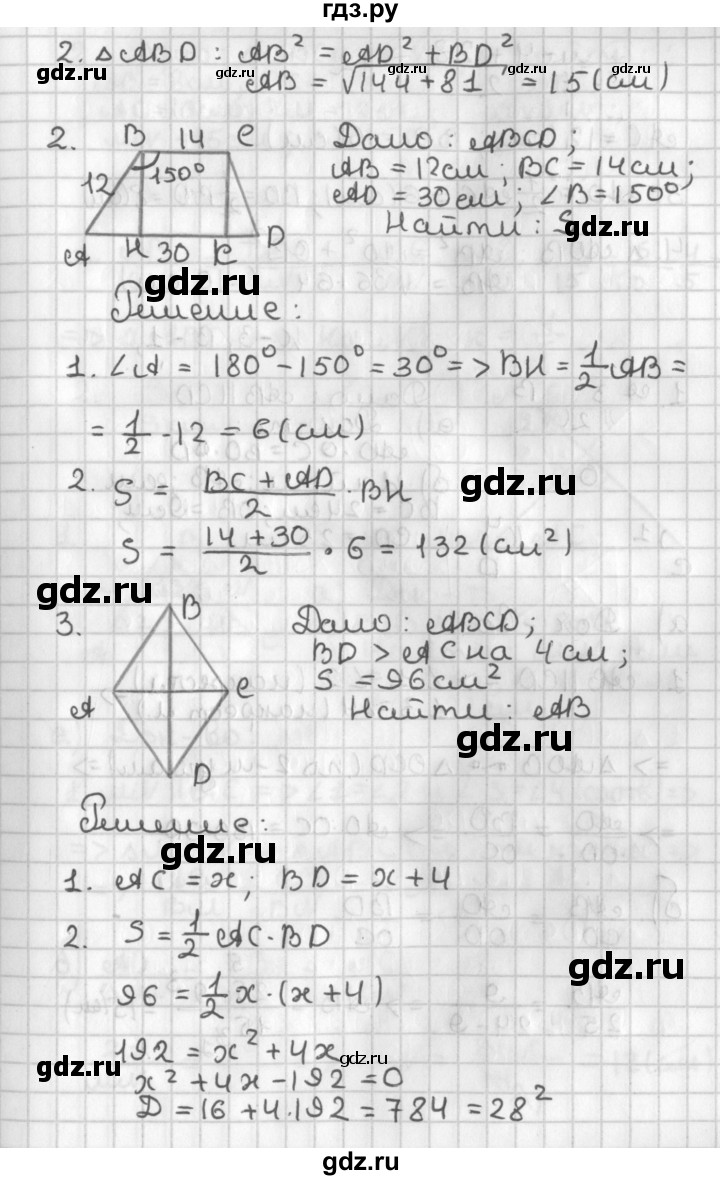 гдз.ру
2. △ABD : AB² = AD² + BD²
AB = √144 + 81 = 15 (см)
2. B 14 C
12 150°
A H 30 K D
Дано : ABCD ;
AB = 12 см ; BC = 14 см ;
AD = 30 см ; ∠B = 150°
Найти : S
gdz.ru
gdz.ru
Решение :
1. ∠A = 180° - 150° = 30° => BH = 1/2 AB =
= 1/2 · 12 = 6 (см)
2. S = (BC + AD)/2 · BH
gdz.ru
S = (14 + 30)/2 · 6 = 132 (см²)
gdz.ru
3. B
A C
D
Дано : ABCD ;
BD > AC на 4 см ;
S = 96 см²
Найти : AB
gdz.ru
Решение :
gdz.ru
1. AC = x ; BD = x + 4
2. S = 1/2 AC · BD
gdz.ru
96 = 1/2 x · (x + 4)
192 = x² + 4x
gdz.ru
gdz.ru
x² + 4x - 192 = 0
D = 16 + 4 · 192 = 784 = 28²
gdz.ru